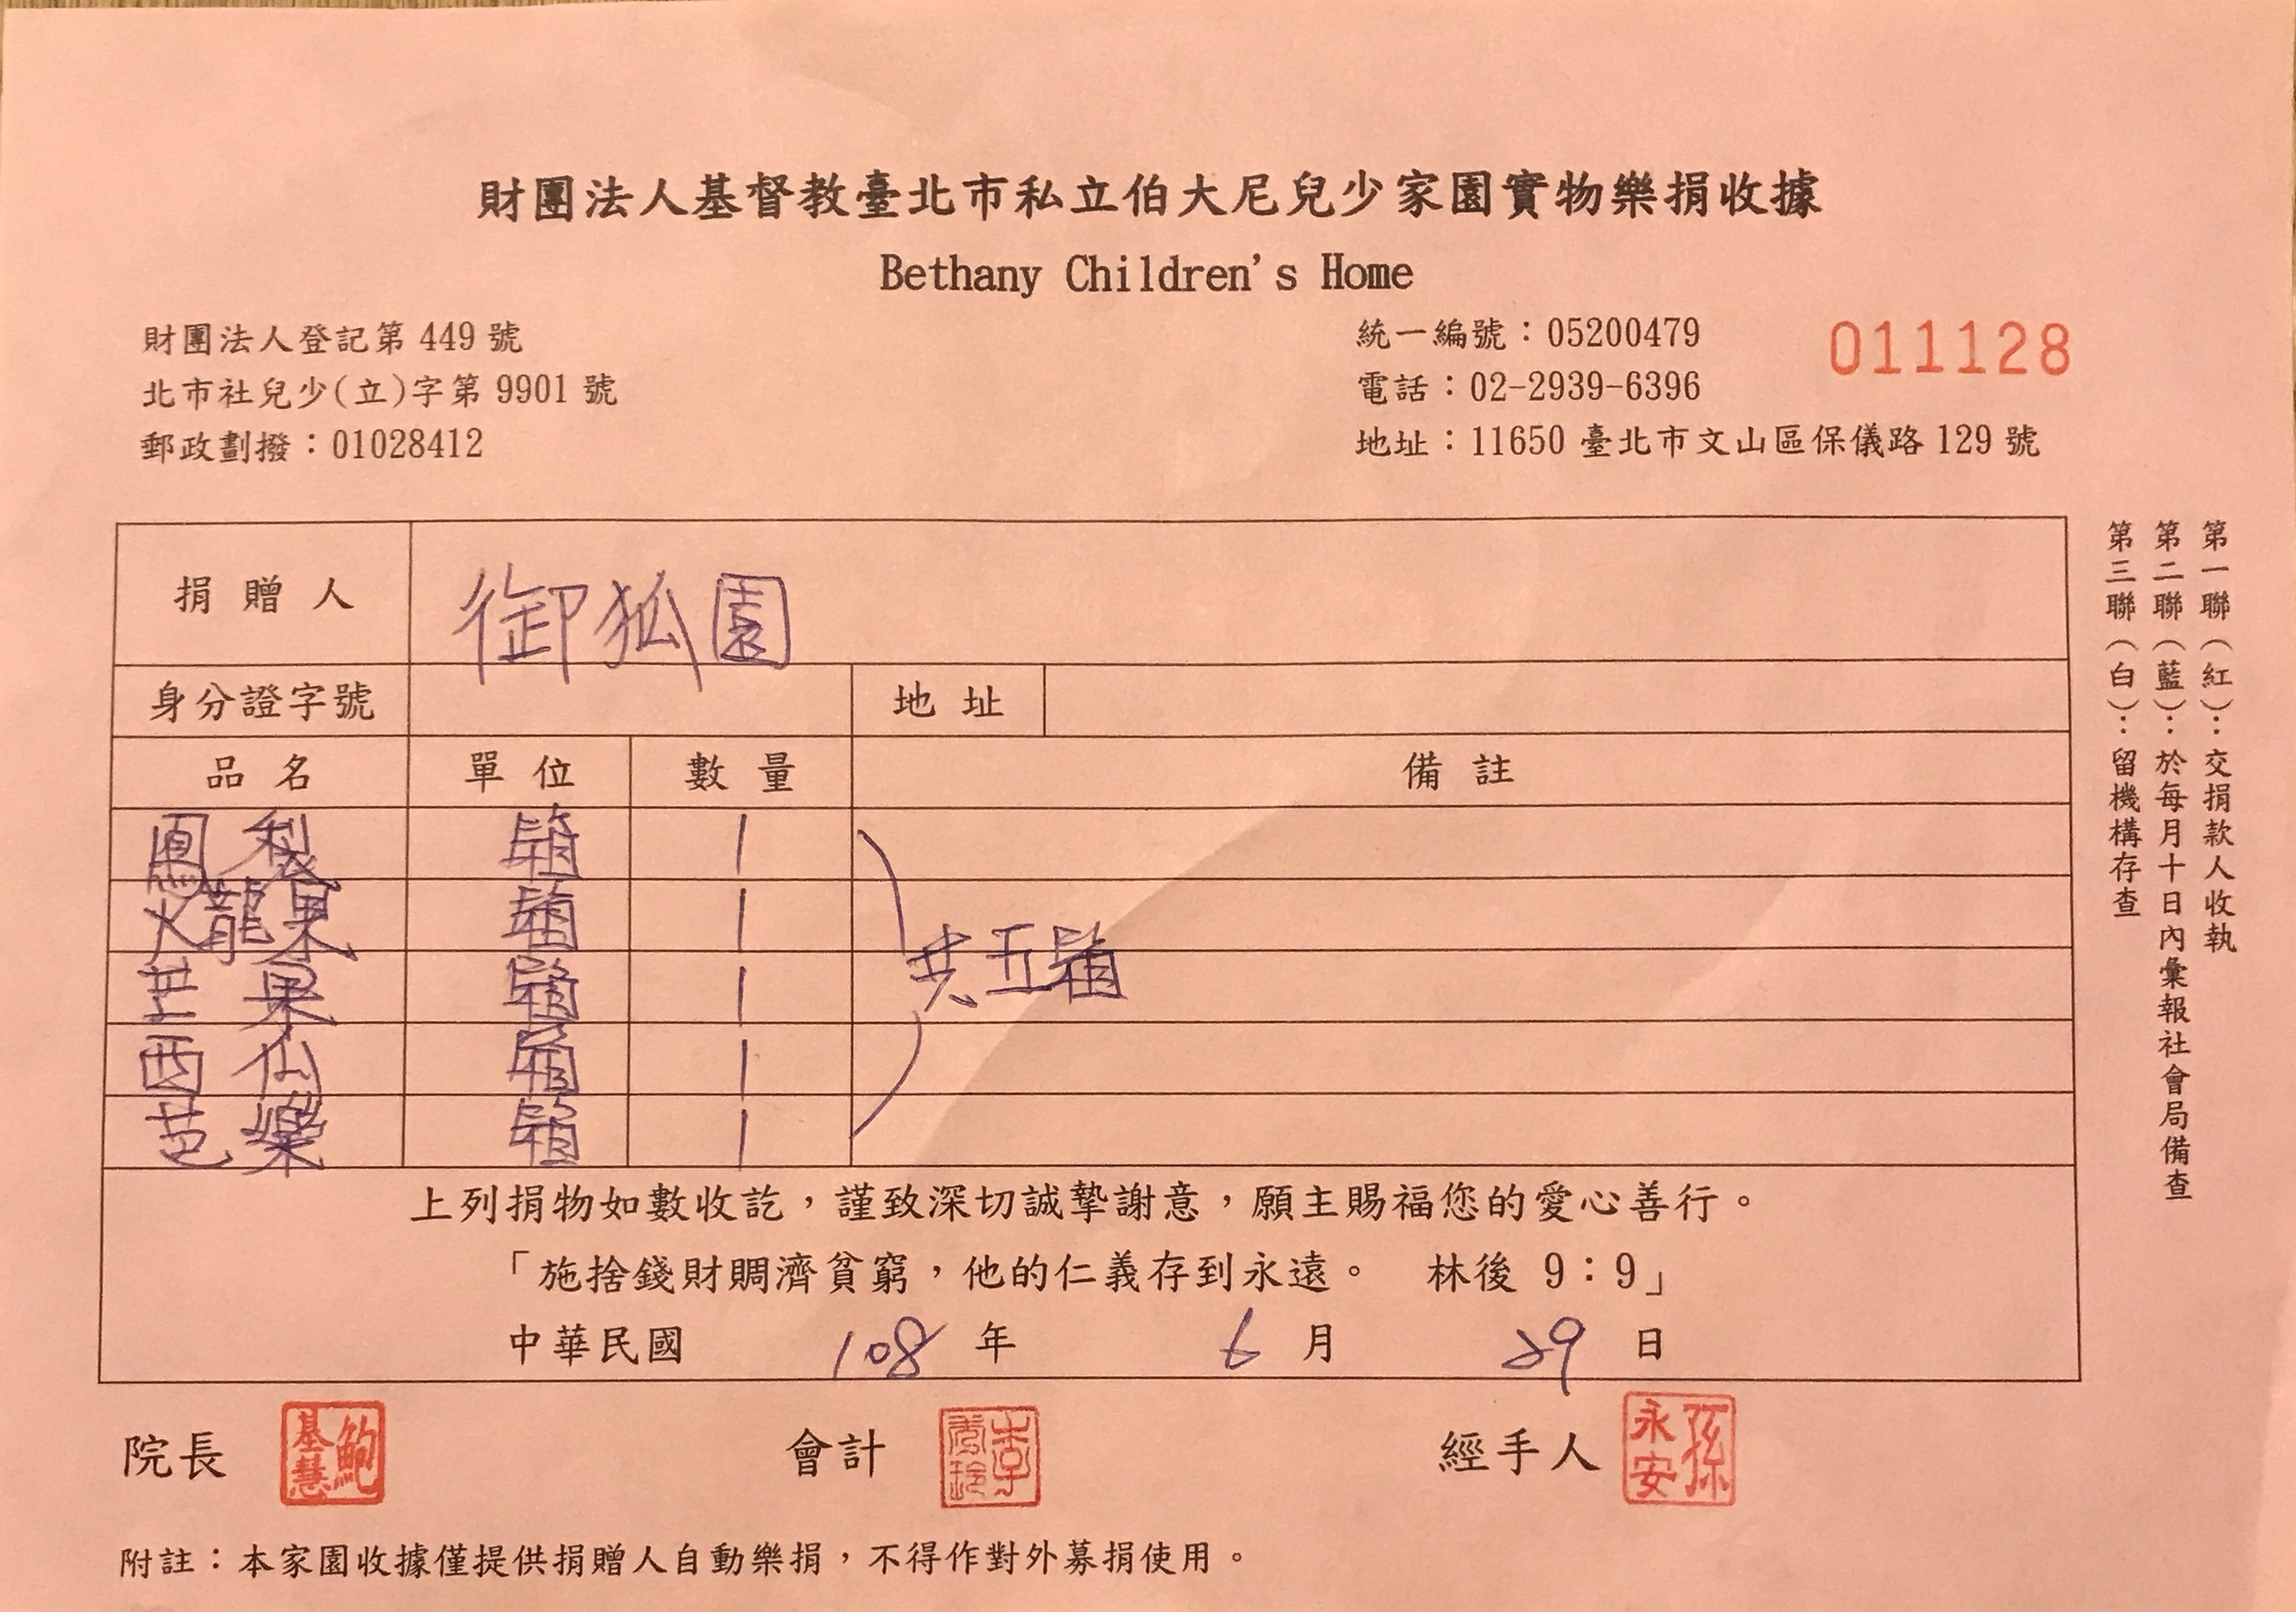 財團法人基督教臺北市私立伯大尼兒少家園實物樂捐收據
Bethany Children's Home
財團法人登記第 449 號
北市社兒少(立)字第 9901 號
郵政劃撥：01028412
統一編號：05200479
電話：02-2939-6396
地址：11650 臺北市文山區保儀路 129 號
011128
捐贈人 御狐園
身分證字號 地址
品名 單位 數量 備註
鳳梨 箱 1
火龍果 箱 1
芒果 箱 1
西瓜 箱 1
芭樂 箱 1
共五箱
上列捐物如數收訖，謹致深切誠摯謝意，願主賜福您的愛心善行。
「施捨錢財賙濟貧窮，他的仁義存到永遠。 林後 9：9」
中華民國 108 年 6 月 29 日
院長 鮑基慧
會計 李
經手人 孫永安
附註：本家園收據僅提供捐贈人自動樂捐，不得作對外募捐使用。
第一聯（紅）：交捐款人收執
第二聯（藍）：於每月十日內彙報社會局備查
第三聯（白）：留機構存查